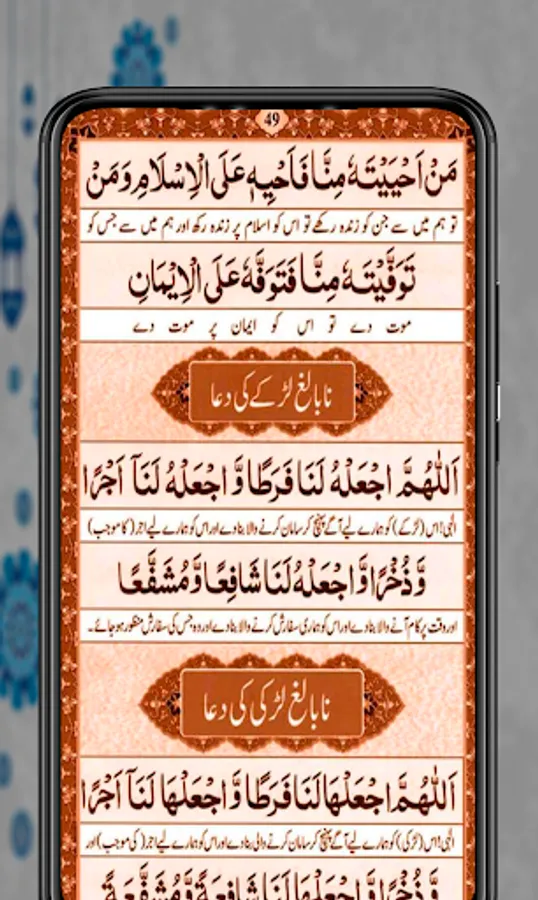 49
مَنْ اَحْيَيْتَهٗ مِنَّا فَاَحْيِهٖ عَلَى الْاِسْلَامِ وَمَنْ
تو ہم میں سے جن کو زندہ رکھے تو اس کو اسلام پر زندہ رکھ اور ہم میں سے جس کو
تَوَفَّيْتَهٗ مِنَّا فَتَوَفَّهٗ عَلَى الْاِيْمَانِ
موت دے تو اس کو ایمان پر موت دے
نابالغ لڑکے کی دعا
اَللّٰهُمَّ اجْعَلْهُ لَنَا فَرَطًا وَّ اجْعَلْهُ لَنَآ اَجْرًا
الٰہی! اس (لڑکے) کو ہمارے لیے آگے پہنچ کر سامان کرنے والا بنا دے اور اس کو ہمارے لیے اجر (کا موجب)
وَّ ذُخْرًا وَّ اجْعَلْهُ لَنَا شَافِعًا وَّ مُشَفَّعًا
اور وقت پر کام آنے والا بنا دے اور اس کو ہماری سفارش کرنے والا بنا دے اور وہ جس کی سفارش منظور ہو جائے۔
نابالغ لڑکی کی دعا
اَللّٰهُمَّ اجْعَلْهَا لَنَا فَرَطًا وَّ اجْعَلْهَا لَنَآ اَجْرًا
الٰہی! اس (لڑکی) کو ہمارے لیے آگے پہنچ کر سامان کرنے والی بنا دے اور اس کو ہمارے لیے اجر (کی موجب) اور
وَّ ذُخْرًا وَّ اجْعَلْهَا لَنَا شَافِعَةً وَّ مُشَفَّعَةً